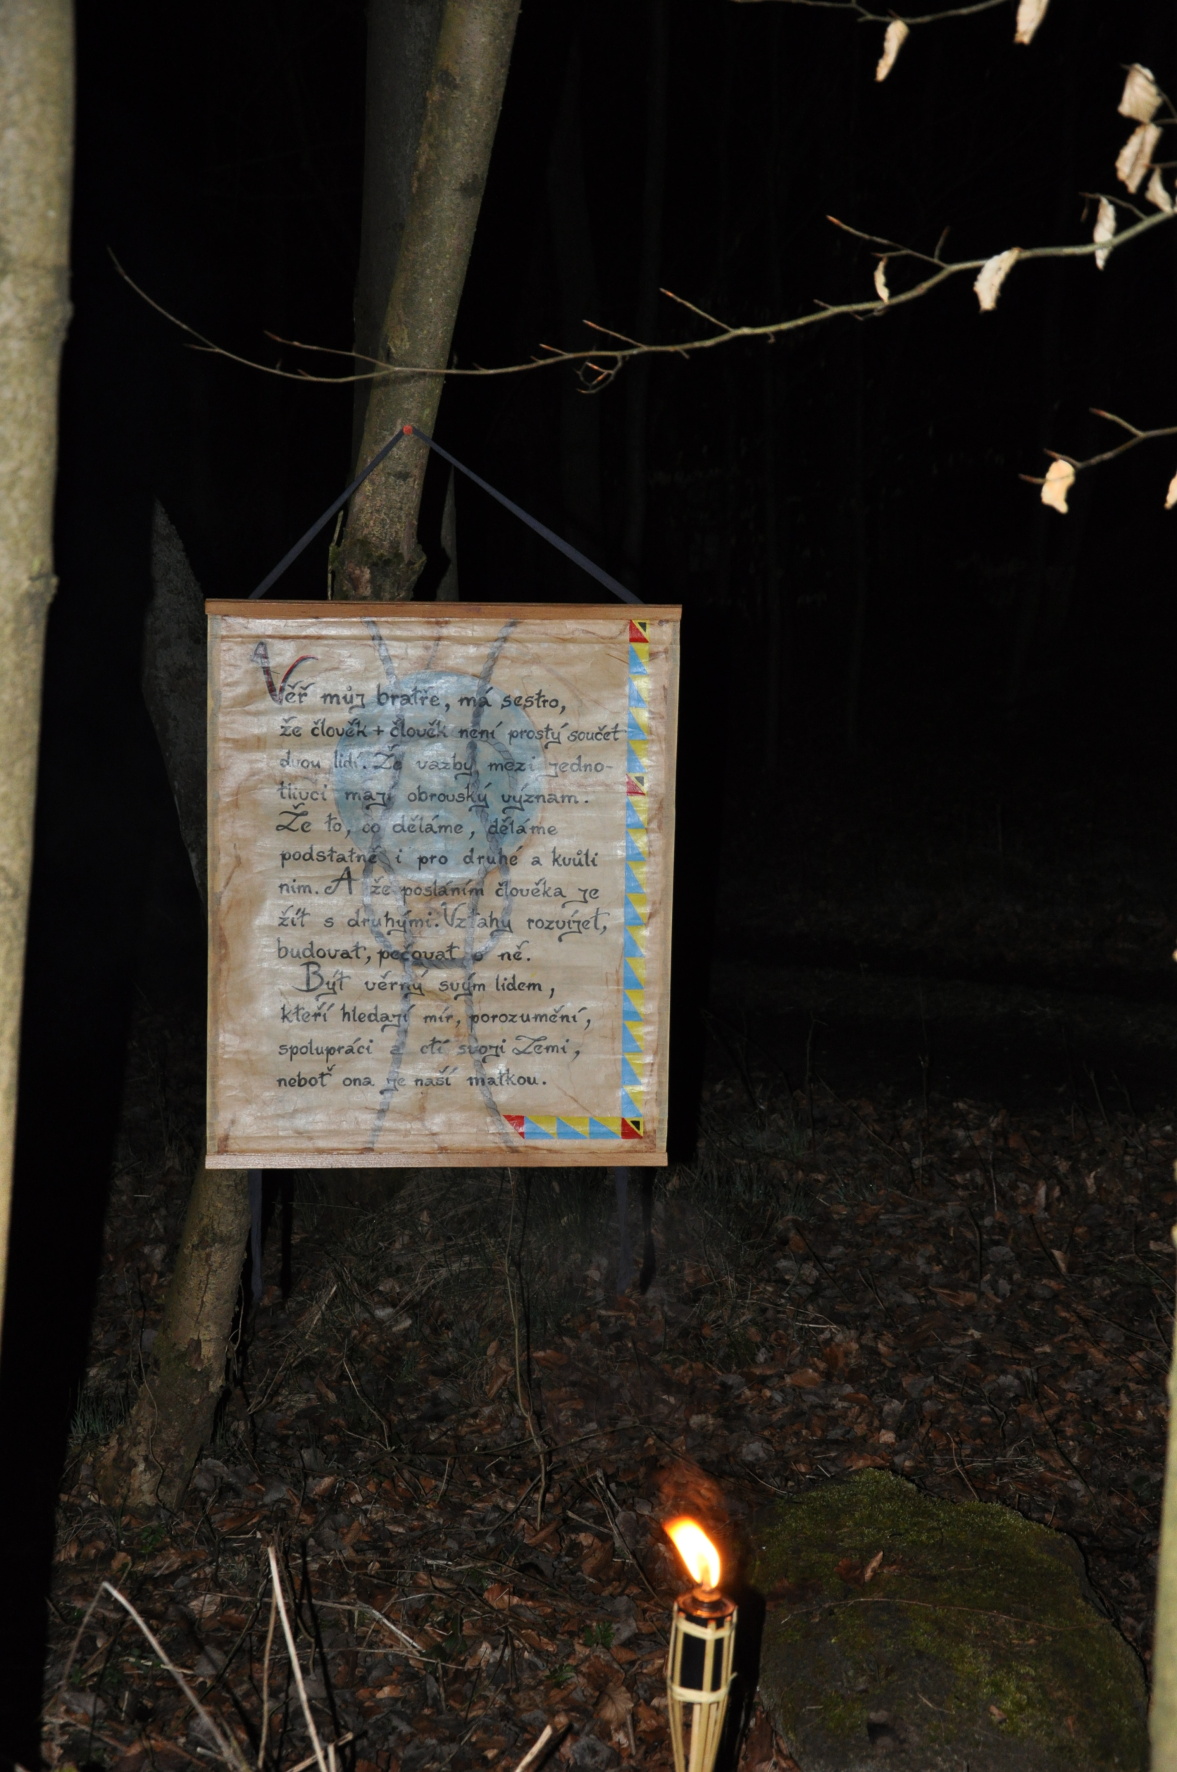 Věř můj bratře, má sestro,
že člověk + člověk není prostý součet
dvou lidí. Že vazby mezi jedno-
tlivci mají obrovský význam.
Že to, co děláme, děláme
podstatně i pro druhé a kvůli
nim. A že posláním člověka je
žít s druhými. Vztahy rozvíjet,
budovat, pečovat o ně.
Být věrný svým lidem,
kteří hledají mír, porozumění,
spolupráci a ctí svoji Zemi,
neboť ona je naší matkou.